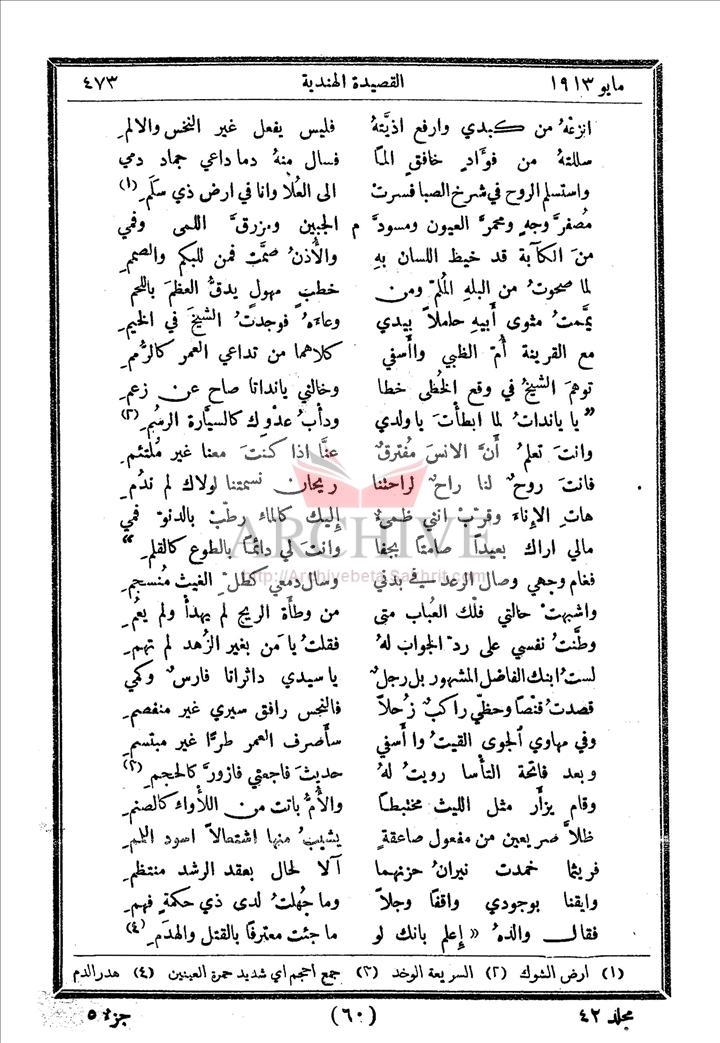 مايو ١٩١٣ القصيدة الهندية ٤٧٣
انزعْهُ من كبدي وارفع اذيَّتهُ فليس يفعل غير النخس والالمِ
سللتهُ من فوَّادٍ خافقٍ المًا فسال منهُ دما داعي جماد دمي
واستسلم الروح في شرخ الصبا فسرتْ الى العُلا وانا في ارض ذي سَلَمِ (١)
مُصفرَّ وجهٍ ومحمرَّ العيون ومسودَّ م الجبين ومزرقَّ اللمى وفمي
منَ الكآبة قد خيظ اللسان بهِ والأُذنُ صمَّت فمن للبكم والصممِ
لما صحوتُ من البلهِ المُلمّ ومن خطبٍ مهولٍ يدقُّ العظمَ باللحمِ
يمَّمتُ مثوى أَبيهِ حاملاً بيدي وعاءَهُ فوجدتُ الشيخَ في الخيمِ
مع القرينة أُمّ الظبي وااسفي كلاهما من تداعي العمر كالرُّممِ
توهمَ الشيخُ في وقع الخُطى خطا وخالني ياندانا صاح عن زعمِ
” يا ياندانُ لما ابطأتَ يا ولدي ودأبُ عدْوِك كالسيَّارة الرسُمِ (٢)
وانتَ تعلمُ أَنَّ الانسَ مُفترقٌ عنَّا اذا كنتَ معنا غير مُلتئمِ
فانتَ روحٌ لنا راحٌ لراحتنا ريحان نسمتنا لولاك لم ندُمِ
هاتِ الإناءَ وقرّبْ انني ظمىءٌ إليك كالماء رطّبْ بالدنوّ فمي
مالي اراك بعيداً صامتاً بجفا وانتَ لي دائمًا بالطوع كالقلمِ “
فغام وجهي وصال الرعد في بدني وسال دمعي كطلّ الغيث مُنسجمِ
واشبهتْ حالتي فلْك العُباب متى من وطأَة الريح لم يهدأ ولم يعُمِ
وطَّنتُ نفسي على ردّ الجوابَ لهُ فقلتُ يا مَن بغير الزُهد لم تهمِ
لستُ ابنك الفاضل المشهور بل رجلٌ يا سيدي داثرانا فارسٌ وكمي
قصدتُ قنْصًا وحظّي راكبٌ زُحلاً فالنجس رافق سيري غير منفصمِ
وفي مهاوي الجوى القيتُ وا أسفي سأَصرف العمر طرًّا غير مبتسمِ
وبعد فاتحة التأسا رويتُ لهُ حديثَ فاجعتي فازورَّ كالحجمِ (٣)
وقام يزأَر مثل الليث مختبطًا والأُمُّ بانت من اللأْواء كالصنمِ
ظلاَّ صريعين من مفعول صاعقةٍ يشيبُ منها اشتعالاً اسود اللممِ
فريثما خمدت نيرانُ حزنهما آلا لحال بعقد الرشد منتظمِ
وايقنا بوجودي واقفًا وجلاً وما جُهلتُ لدى ذي حكمةٍ فهمِ
فقال والدهُ « إعلم بانك لو ما جئت معترفًا بالقتل والهدَمِ (٤)
(١) ارض الشوك (٢) السريعة الوخد (٣) جمع احجم اي شديد حمرة العينين (٤) هدر الدم
مجلد ٤٢ (٦٠) جزء ٥
ARCHIVE
http://Archivebeta.Sakhrit.com